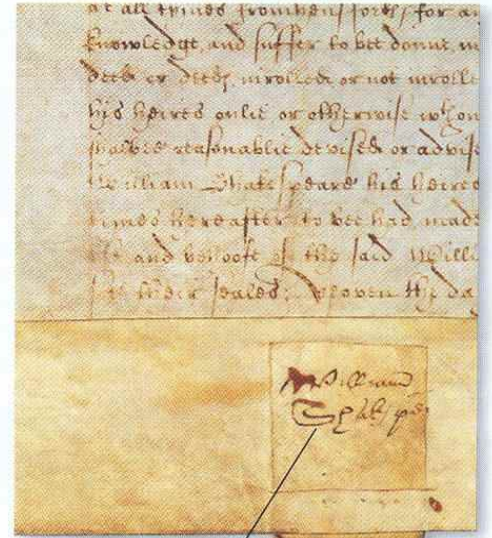 at all tymes from hensforth, for an
knowledge, and suffer to bee donne, an
deede or deedes inrolled or not inrolle
his heires onlie or otherwise
shalbee reasonablie devised or advise
William Shakespeare his heires
tymes hereafter to bee had, made
and behoofe of the said Willi
their seales; Yeoven the da
William
Shakspē